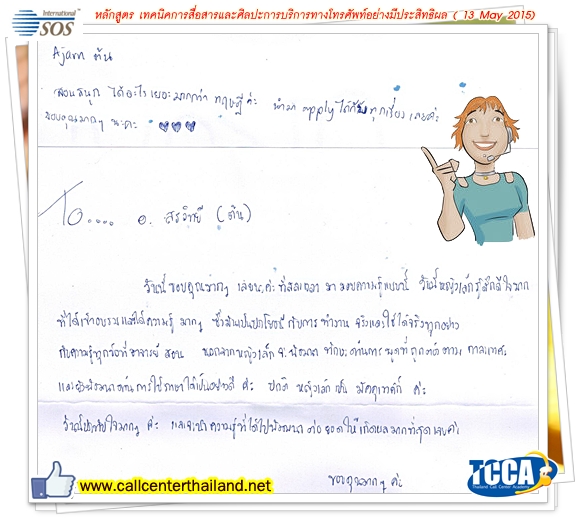 International
SOS
หลักสูตร เทคนิคการสื่อสารและศิลปะการบริการทางโทรศัพท์อย่างมีประสิทธิผล ( 13 May 2015)
Ajarn ต้น
สอนสนุก ได้อะไรเยอะมากกว่า ทฤษฎี ค่ะ นำมา apply ได้กับทุกเรื่อง เลยค่ะ
ขอบคุณมากๆ นะคะ
To..... อ. (ต้น)
วันนี้ขอบคุณมากๆ เลยนะค่ะ ที่สละเวลา มา มอบความรู้แบบนี้ วันนี้หญิงเล็กรู้สึกดีใจมาก
ที่ได้เข้าอบรมและได้ความรู้ มากๆ ซึ่งมันเป็นประโยชน์ กับการ ทำงาน จริงและใช้ได้จริงทุกอย่าง
กับความรู้ทุกข้อที่อาจารย์ สอน นอกจากหญิงเล็ก จะพัฒนา ทักษะ ด้านการ พูดที่ถูกต้อง ตาม กาลเทศะ
และยังพัฒนาด้าน การใช้ภาษาได้เป็นอย่างดี ค่ะ ปกติ หญิงเล็ก เป็น มัคคุเทศก์ ค่ะ
วันนี้ประทับใจมากๆ ค่ะ และจะนำความรู้ที่ได้ไปพัฒนา ต่อ ยอด ให้เกิดผล มากที่สุด เลยค่ะ
ขอบคุณมากๆ ค่ะ
www.callcenterthailand.net
TCCA
Thailand Call Center Academy